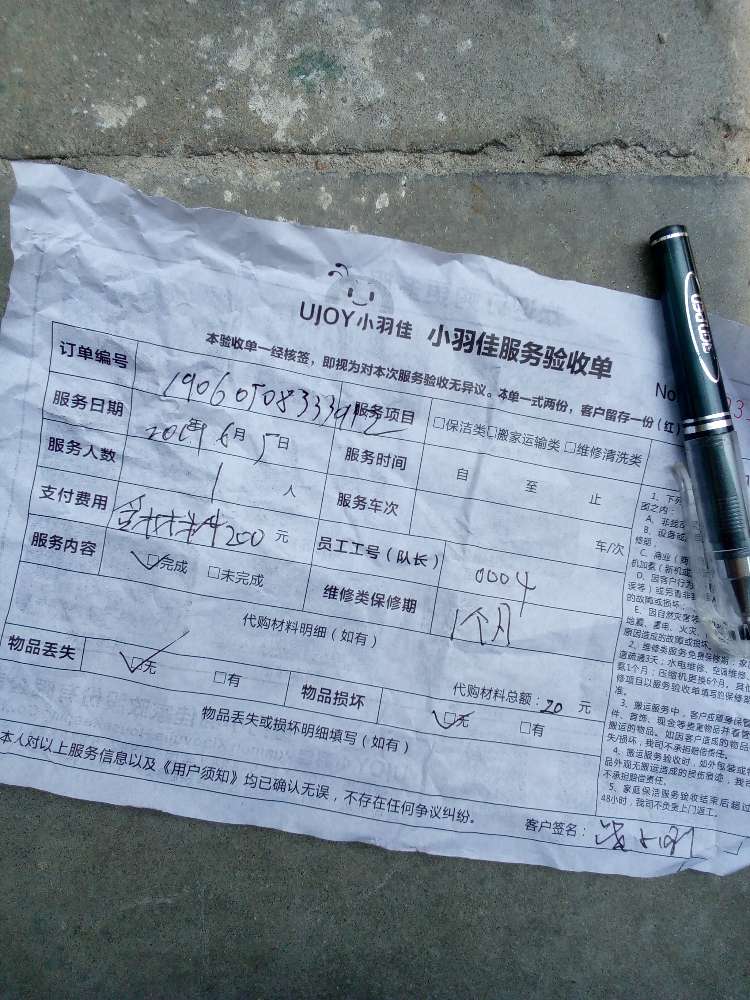 UJOY小羽佳 小羽佳服务验收单
本验收单一经核签，即视为对本次服务验收无异议。本单一式两份，客户留存一份（红）
No
订单编号 服务项目 □保洁类□搬家运输类 □维修清洗类
服务日期 2019年6月5日 服务时间 自 至 止
服务人数 1 人 服务车次 车/次
支付费用 200 元 员工工号（队长） 0004
服务内容 □完成 □未完成 维修类保修期 1个月
代购材料明细（如有）
代购材料总额：20 元
物品丢失 □无 □有 物品损坏 □无 □有
物品丢失或损坏明细填写（如有）
本人对以上服务信息以及《用户须知》均已确认无误，不存在任何争议纠纷。
客户签名：
1、下列
围之内：
A、非
B、设备或
修期
C、商业（商
机加氨（新机或
D、因客户行为
误等）或另香非
的故障或损坏
E、因自然灾害等
地震、雷电、火灾、
原因造成的故障或损坏
2、维修类服务免费保修期：家
道疏通3天；水电维修、空调维修、
氨1个月；压缩机更换6个月，其他
修项目以服务验收单填写的保修期
准。
3、搬运服务中，客户应随身保管
件、首饰、现金等贵重物品并看管
搬运的物品。如因客户造成的物品
失/损坏，我司不承担赔偿责任。
4、搬运服务验收时，如外包装或物
品外观无搬运造成的损伤痕迹，我司
不承担赔偿责任。
5、家庭保洁服务验收结束后超过
48小时，我司不负责上门返工。